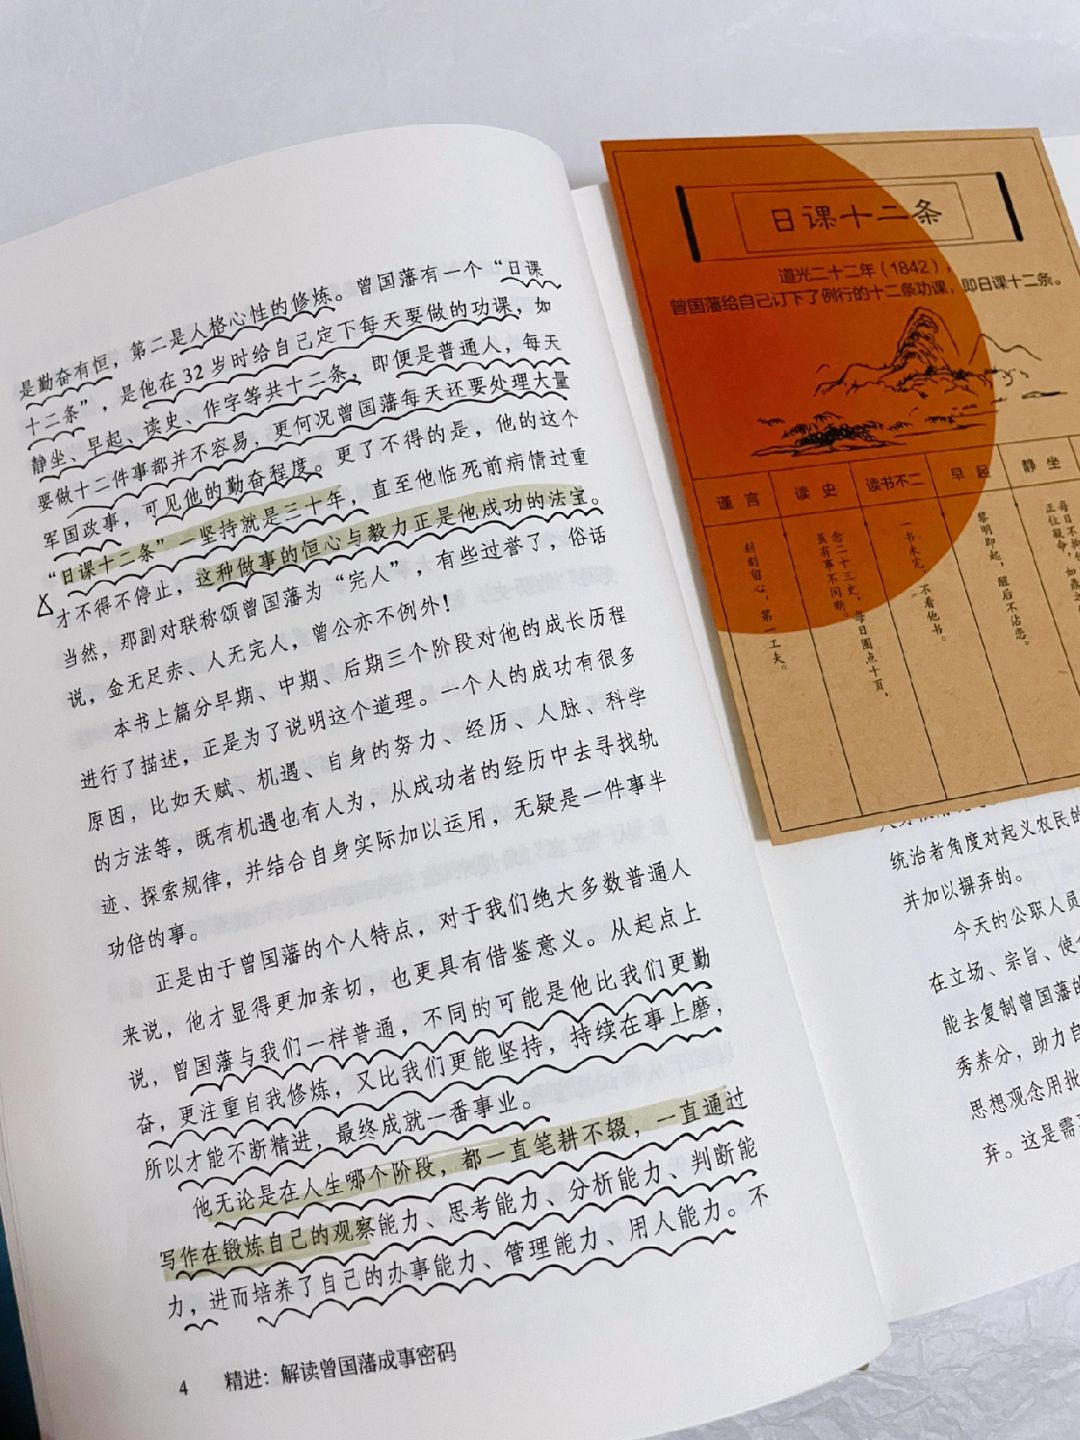 是勤奋有恒，第二是人格心性的修炼。曾国藩有一个“日课
十二条”，是他在32岁时给自己定下每天要做的功课，如
静坐、早起、读史、作字等共十二条，即便是普通人，每天
要做十二件事都并不容易，更何况曾国藩每天还要处理大量
军国政事，可见他的勤奋程度。更了不得的是，他的这个
“日课十二条”一坚持就是三十年，直至他临死前病情过重
才不得不停止，这种做事的恒心与毅力正是他成功的法宝。
当然，那副对联称颂曾国藩为“完人”，有些过誉了，俗话
说，金无足赤、人无完人，曾公亦不例外！
本书上篇分早期、中期、后期三个阶段对他的成长历程
进行了描述，正是为了说明这个道理。一个人的成功有很多
原因，比如天赋、机遇、自身的努力、经历、人脉、科学
的方法等，既有机遇也有人为，从成功者的经历中去寻找轨
迹、探索规律，并结合自身实际加以运用，无疑是一件事半
功倍的事。
正是由于曾国藩的个人特点，对于我们绝大多数普通人
来说，他才显得更加亲切，也更具有借鉴意义。从起点上
说，曾国藩与我们一样普通，不同的可能是他比我们更勤
奋，更注重自我修炼，又比我们更能坚持，持续在事上磨，
所以才能不断精进，最终成就一番事业。
他无论是在人生哪个阶段，都一直笔耕不辍，一直通过
写作在锻炼自己的观察能力、思考能力、分析能力、判断能
力，进而培养了自己的办事能力、管理能力、用人能力。不
4 精进：解读曾国藩成事密码
日课十二条
道光二十二年（1842），
曾国藩给自己订下了例行的十二条功课，即日课十二条。
谨言
刻刻留心，第一工夫。
读史
念二十三史，每日圈点十页，
虽有事不间断。
读书不二
一书未完，不看他书。
早起
黎明即起，醒后不沾恋。
静坐
每日不拘
正位凝命，如鼎之
统治者角度对起义农民的
并加以摒弃的。
今天的公职人员
在立场、宗旨、使
能去复制曾国藩的
秀养分，助力自
思想观念用批
弃。这是需